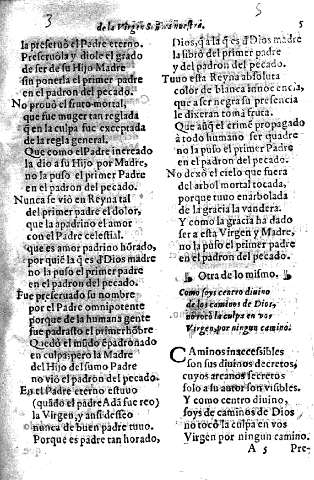 3
5
de la Virgen S. ñra nuestra.
5
la preseruò el Padre eterno.
Preseruola y diole el grado
de ser de su Hijo Madre
sin ponerla el primer padre
en el padron del pecado.
No prouò el fruto mortal,
que fue muger tan reglada
q̃ en la culpa fue exceptada
de la regla general.
Que como el Padre increado
la dio a su Hijo por Madre,
no la puso el primer Padre
en el padron del pecado.
Nunca se viò en Reyna tal
del primer padre el dolor,
que la apadrino el amor
con el Padre celestial.
que es amor padrino hõrado,
por quie la q̃ es d̃ Dios madre
no la puso el primer padre
en el padron del pecado.
Fue preseruado su nombre
por el Padre omnipotente
porque de la humana gente
fue padrasto el primer hõbre
Quedò el mũdo èpadronado
en culpa, pero la Madre
del Hijo del sumo Padre
no viò el padron del pecado.
En el Padre eterno estuuo
(quãdo el padre Adã fue reo)
la Virgen, y ansi deseo
nunca de buen padre tuuo.
Porque es padre tan horado,
Dios, q̃ a la q̃ es d̃ Dios madre
la librò del primer padre
y del padron del pecado.
Tuuo esta Reyna absoluta
color de blanca innocencia,
que a ser negra su presencia
le dixeran toma fruta.
Que aũq̃ el crimẽ propagado
à todo humano ser quadre
no la puso el primer Padre
en el padron del pecado.
No dexò el cielo que fuera
del arbol mortal tocada,
porque tuuo enarbolada
de la gracia la vandera.
Y como la gracia ha dado
ser a esta Virgen y Madre,
no la puso el primer padre
en el padron del pecado.
Otra de lo mismo.
Como soys centro diuino
de los caminos de Dios,
no tocò la culpa en vos
Virgen, por ningun camino.
CAminos inaccessibles
son sus diuinos decretos,
cuyos arcanos secretos
solo a su autor son visibles.
Y como centro diuino,
soys de caminos de Dios
no tocò la culpa en vos
Virgen por ningun camino.
A 5 Pre-